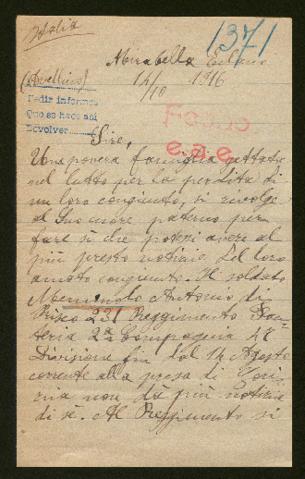 Italia
1371
Mirabella Eclano
(Avellino)
14/10 1916
Pedir informe,
Que se hace así
Devolver
Fe
e.a.e.
Sire,
Una povera famiglia gettata
nel lutto per la perdita di
un loro congiunto, si rivolge
al Suo cuore paterno per
fare sì che potesse avere al
più presto notizie del loro
amato congiunto. Il soldato
Antonio di
Prisco 231 Reggimento Fan-
teria 2ª Compagnia 48
Divisione fin dal 14 Agosto
corrente alla presa di Gori-
zia non dà più notizie
di sè. Al Reggimento si